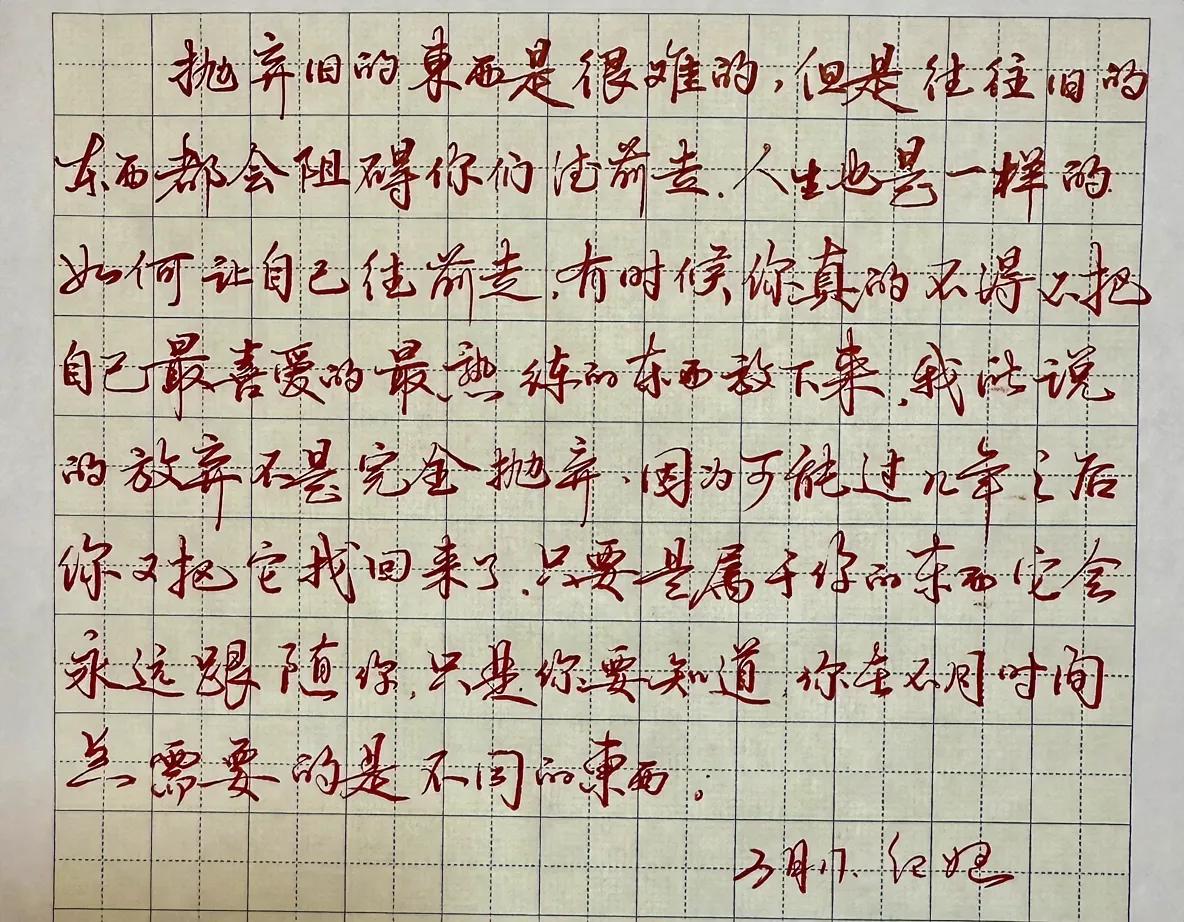 抛弃旧的東西是很难的,但是往往旧的
东西都会阻碍你们往前走.人生也是一样的
如何让自己往前走,有时候你真的不得不把
自己最喜爱的最熟练的东西放下来,我所说
的放弃不是完全抛弃.因为可能过几年之后
你又把它找回来了.只要是属于你的东西它会
永远跟随你,只是你要知道.你在不同时间
点需要的是不同的東西。
3月17.